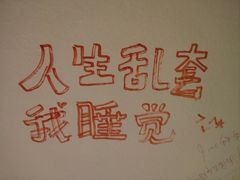 人生乱套
我睡觉